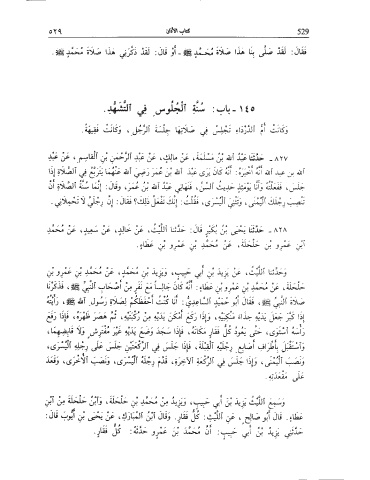 ٥٢٩ كتاب الأذان 529
فَقَالَ: لَقَدْ صَلَّى بِنَا هَذَا صَلَاةَ مُحَمَّدٍ ﷺ ـ أَوْ قَالَ: لَقَدْ ذَكَّرَنِي هَذَا صَلَاةَ مُحَمَّدٍ ﷺ.
١٤٥ ـ باب: سُنَّةِ الْجُلُوسِ فِي التَّشَهُّدِ.
وَكَانَتْ أُمُّ الدَّرْدَاءِ تَجْلِسُ فِي صَلَاتِهَا جِلْسَةَ الرَّجُلِ، وَكَانَتْ فَقِيهَةً.
٨٢٧ ـ حَدَّثَنَا عَبْدُ اللهِ بْنُ مَسْلَمَةَ، عَنْ مَالِكٍ، عَنْ عَبْدِ الرَّحْمٰنِ بْنِ الْقَاسِمِ، عَنْ عَبْدِ
اللهِ بْنِ عَبْدِ اللهِ أَنَّهُ أَخْبَرَهُ: أَنَّهُ كَانَ يَرَى عَبْدَ اللهِ بْنَ عُمَرَ رَضِيَ اللهُ عَنْهُمَا يَتَرَبَّعُ فِي الصَّلَاةِ إِذَا
جَلَسَ، فَفَعَلْتُهُ وَأَنَا يَوْمَئِذٍ حَدِيثُ السِّنِّ، فَنَهَانِي عَبْدُ اللهِ بْنُ عُمَرَ، وَقَالَ: إِنَّمَا سُنَّةُ الصَّلَاةِ أَنْ
تَنْصِبَ رِجْلَكَ الْيُمْنَى، وَتَثْنِيَ الْيُسْرَى، فَقُلْتُ: إِنَّكَ تَفْعَلُ ذٰلِكَ؟ فَقَالَ: إِنَّ رِجْلَيَّ لَا تَحْمِلَانِي.
٨٢٨ ـ حَدَّثَنَا يَحْيَى بْنُ بُكَيْرٍ قَالَ: حَدَّثَنَا اللَّيْثُ، عَنْ خَالِدٍ، عَنْ سَعِيدٍ، عَنْ مُحَمَّدِ
ابْنِ عَمْرِو بْنِ حَلْحَلَةَ، عَنْ مُحَمَّدِ بْنِ عَمْرِو بْنِ عَطَاءٍ.
وَحَدَّثَنَا اللَّيْثُ، عَنْ يَزِيدَ بْنِ أَبِي حَبِيبٍ، وَيَزِيدَ بْنِ مُحَمَّدٍ، عَنْ مُحَمَّدِ بْنِ عَمْرِو بْنِ
حَلْحَلَةَ، عَنْ مُحَمَّدِ بْنِ عَمْرِو بْنِ عَطَاءٍ: أَنَّهُ كَانَ جَالِساً مَعَ نَفَرٍ مِنْ أَصْحَابِ النَّبِيِّ ﷺ، فَذَكَرْنَا
صَلَاةَ النَّبِيِّ ﷺ، فَقَالَ أَبُو حُمَيْدٍ السَّاعِدِيُّ: أَنَا كُنْتُ أَحْفَظَكُمْ لِصَلَاةِ رَسُولِ اللهِ ﷺ، رَأَيْتُهُ
إِذَا كَبَّرَ جَعَلَ يَدَيْهِ حِذَاءَ مَنْكِبَيْهِ، وَإِذَا رَكَعَ أَمْكَنَ يَدَيْهِ مِنْ رُكْبَتَيْهِ، ثُمَّ هَصَرَ ظَهْرَهُ، فَإِذَا رَفَعَ
رَأْسَهُ اسْتَوَى، حَتَّى يَعُودَ كُلُّ فَقَارٍ مَكَانَهُ، فَإِذَا سَجَدَ وَضَعَ يَدَيْهِ غَيْرَ مُفْتَرِشٍ وَلَا قَابِضِهِمَا،
وَاسْتَقْبَلَ بِأَطْرَافِ أَصَابِعِ رِجْلَيْهِ الْقِبْلَةَ، فَإِذَا جَلَسَ فِي الرَّكْعَتَيْنِ جَلَسَ عَلَى رِجْلِهِ الْيُسْرَى،
وَنَصَبَ الْيُمْنَى، وَإِذَا جَلَسَ فِي الرَّكْعَةِ الْآخِرَةِ، قَدَّمَ رِجْلَهُ الْيُسْرَى، وَنَصَبَ الْأُخْرَى، وَقَعَدَ
عَلَى مَقْعَدَتِهِ.
وَسَمِعَ اللَّيْثُ يَزِيدَ بْنَ أَبِي حَبِيبٍ، وَيَزِيدُ مِنْ مُحَمَّدِ بْنِ حَلْحَلَةَ، وَابْنُ حَلْحَلَةَ مِنْ ابْنِ
عَطَاءٍ. قَالَ أَبُو صَالِحٍ، عَنِ اللَّيْثِ: كُلُّ فَقَارٍ. وَقَالَ ابْنُ الْمُبَارَكِ، عَنْ يَحْيَى بْنِ أَيُّوبَ قَالَ:
حَدَّثَنِي يَزِيدُ بْنُ أَبِي حَبِيبٍ: أَنَّ مُحَمَّدَ بْنَ عَمْرٍو حَدَّثَهُ: كُلُّ فَقَارٍ.